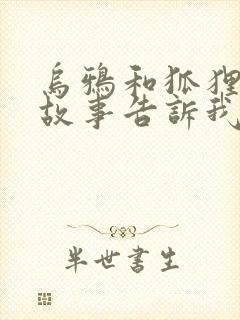 烏鴉和狐狸
故事告訴我
半世書生